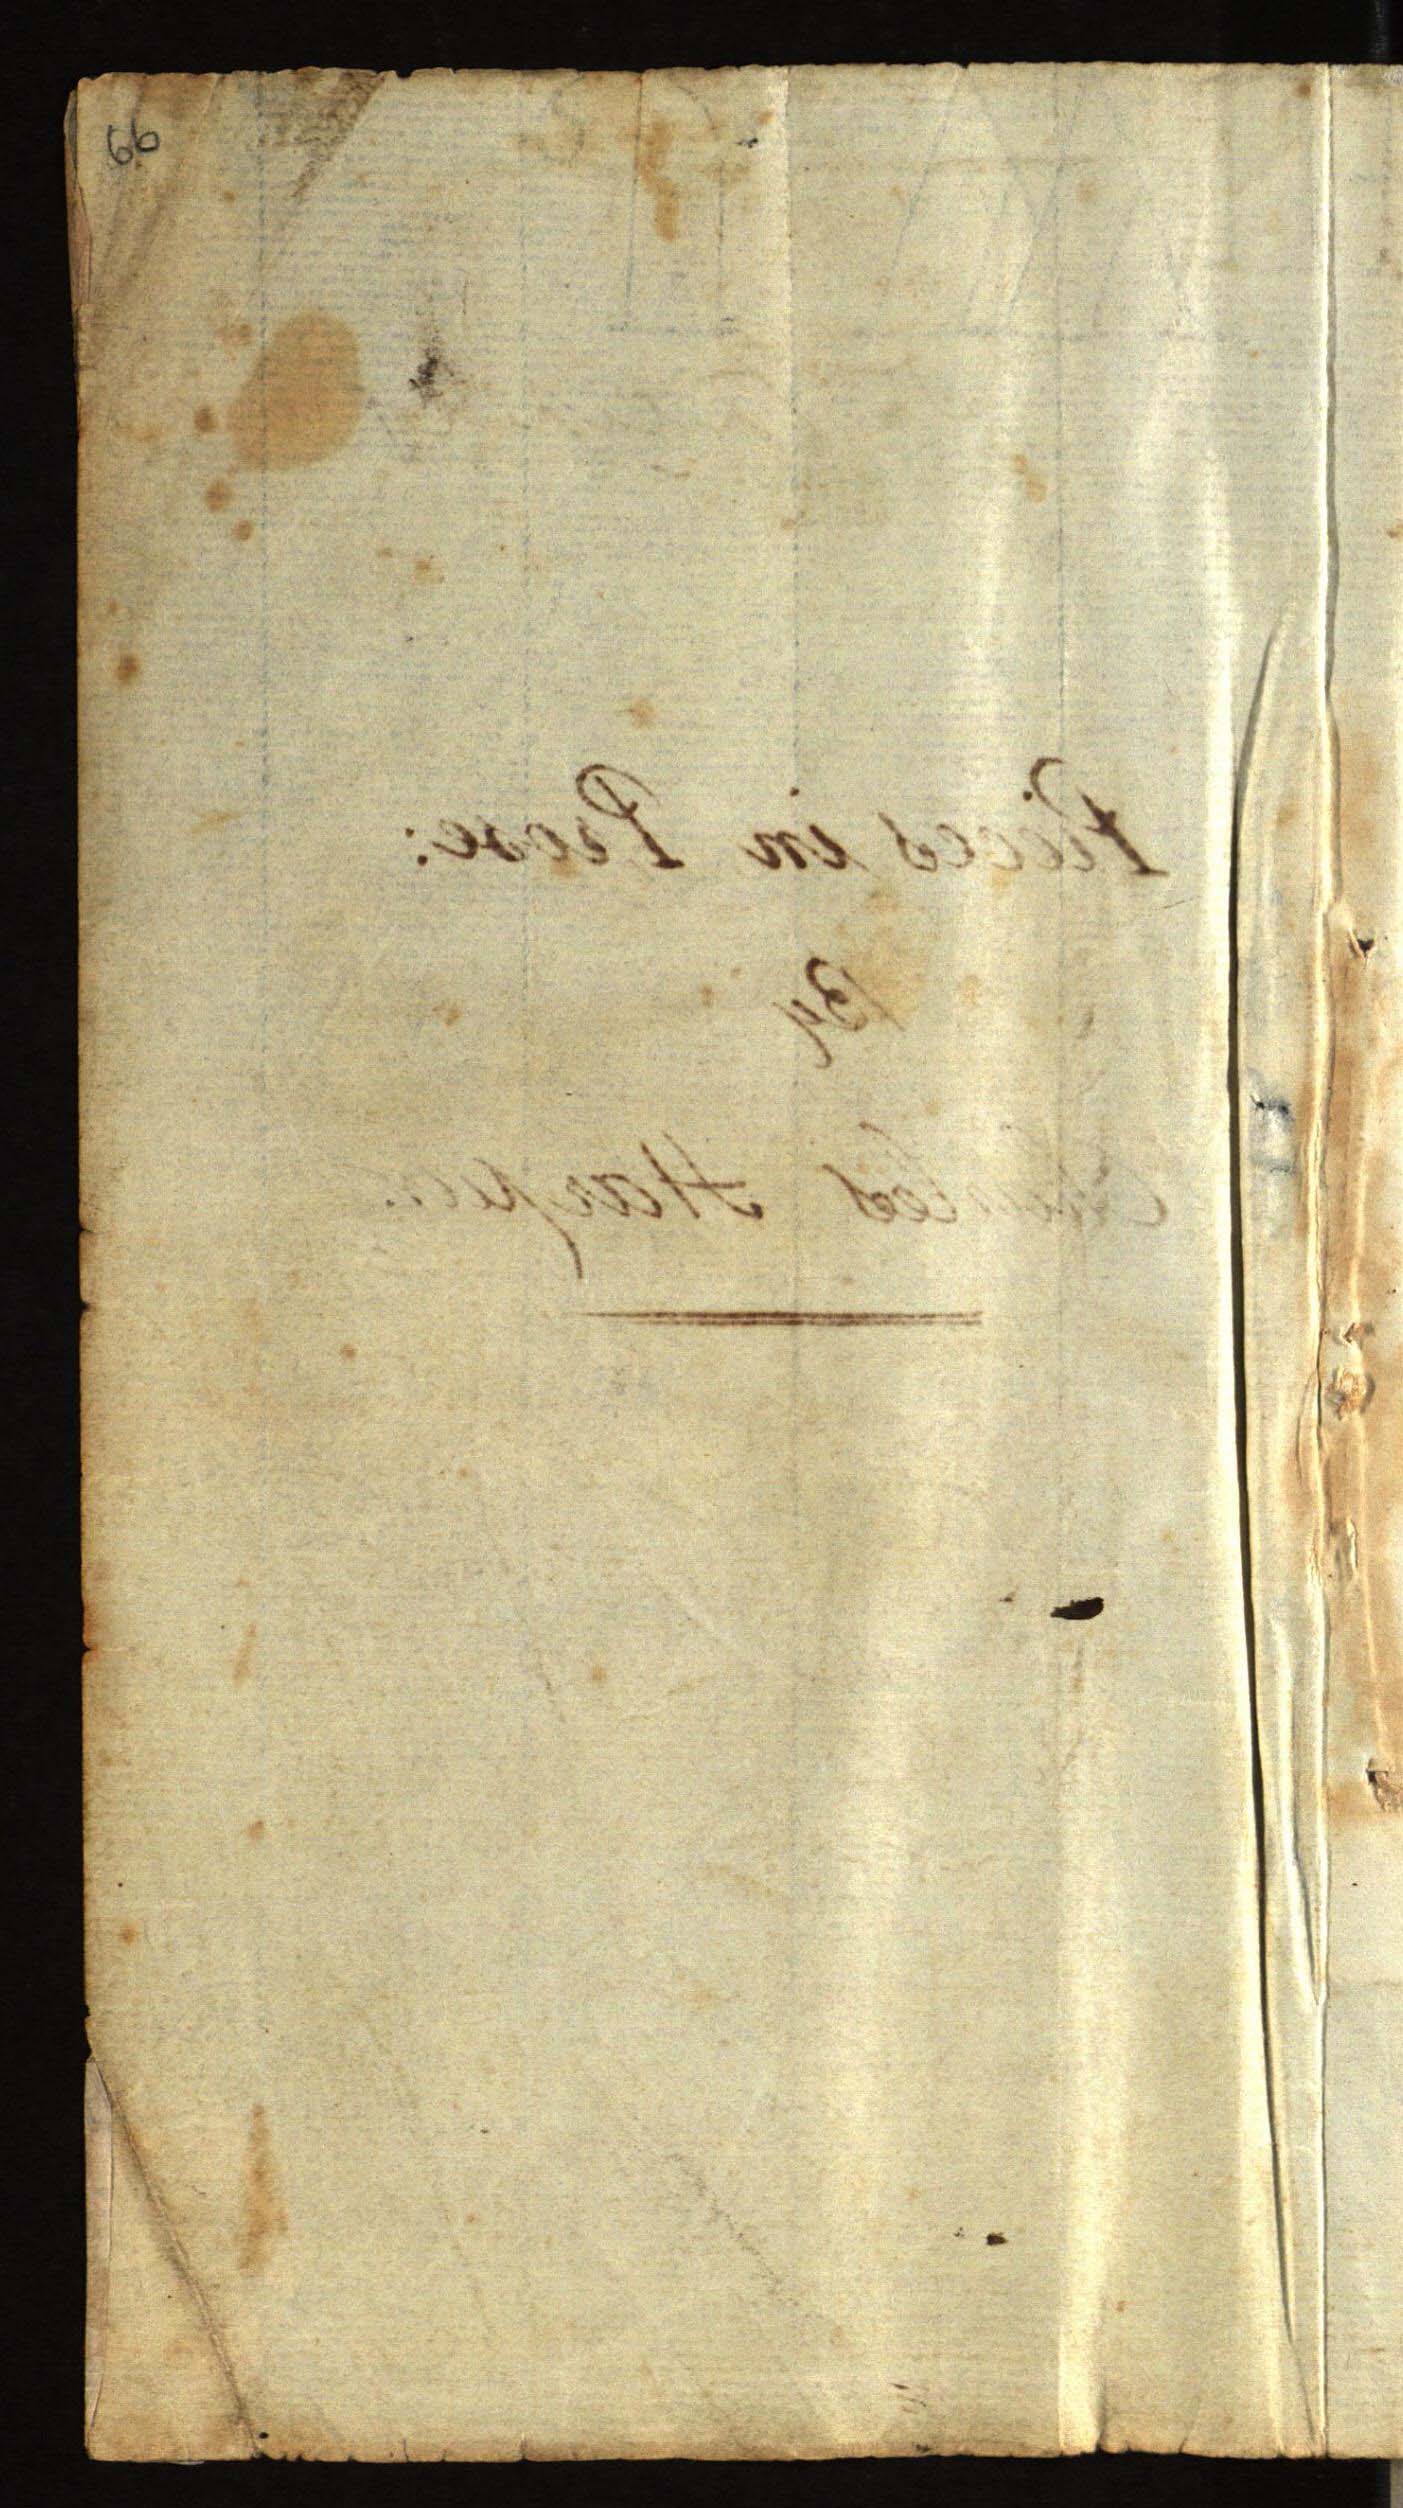 66
Pieces in Prose:
By
Charles Harpur.